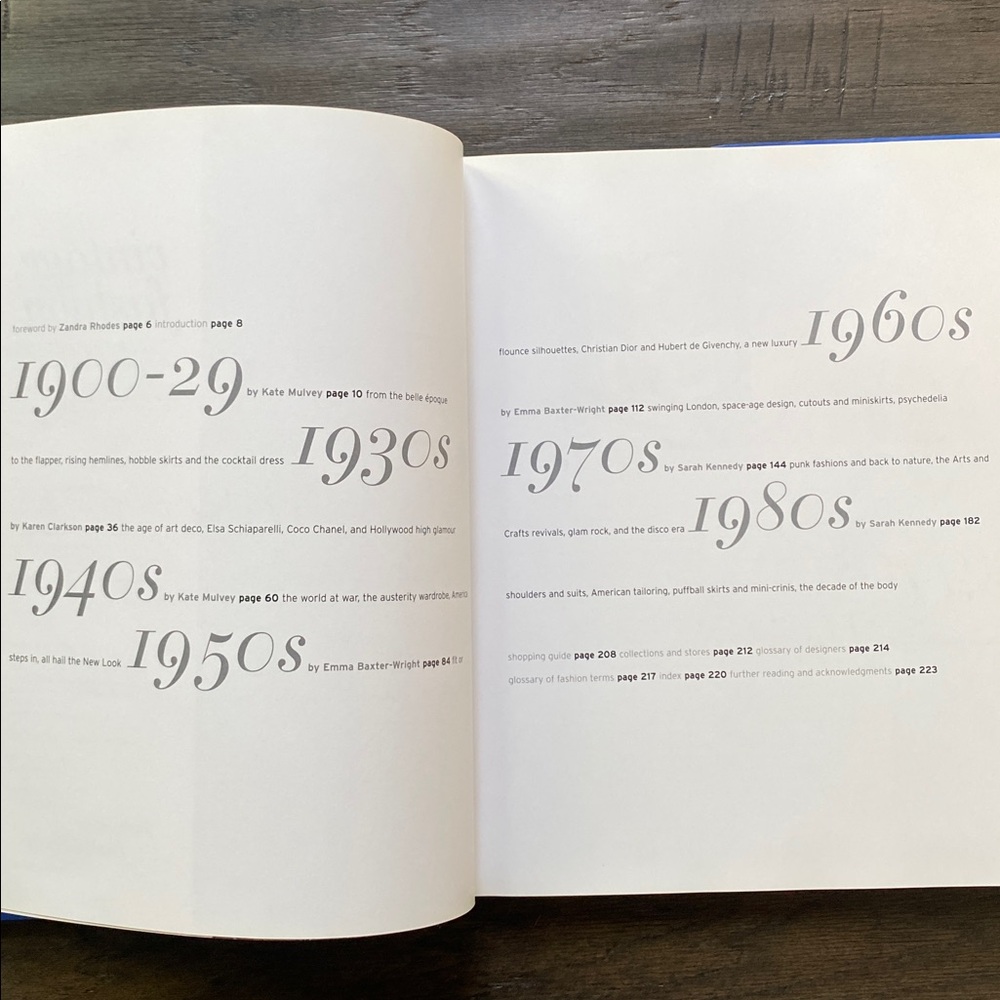 foreword by Zandra Rhodes page 6 introduction page 8
1900-29 by Kate Mulvey page 10 from the belle époque
to the flapper, rising hemlines, hobble skirts and the cocktail dress 1930s
by Karen Clarkson page 36 the age of art deco, Elsa Schiaparelli, Coco Chanel, and Hollywood high glamour
1940s by Kate Mulvey page 60 the world at war, the austerity wardrobe, America
steps in, all hail the New Look 1950s by Emma Baxter-Wright page 84 fit or
flounce silhouettes, Christian Dior and Hubert de Givenchy, a new luxury 1960s
by Emma Baxter-Wright page 112 swinging London, space-age design, cutouts and miniskirts, psychedelia
1970s by Sarah Kennedy page 144 punk fashions and back to nature, the Arts and
Crafts revivals, glam rock, and the disco era 1980s by Sarah Kennedy page 182
shoulders and suits, American tailoring, puffball skirts and mini-crinis, the decade of the body
shopping guide page 208 collections and stores page 212 glossary of designers page 214
glossary of fashion terms page 217 index page 220 further reading and acknowledgments page 223